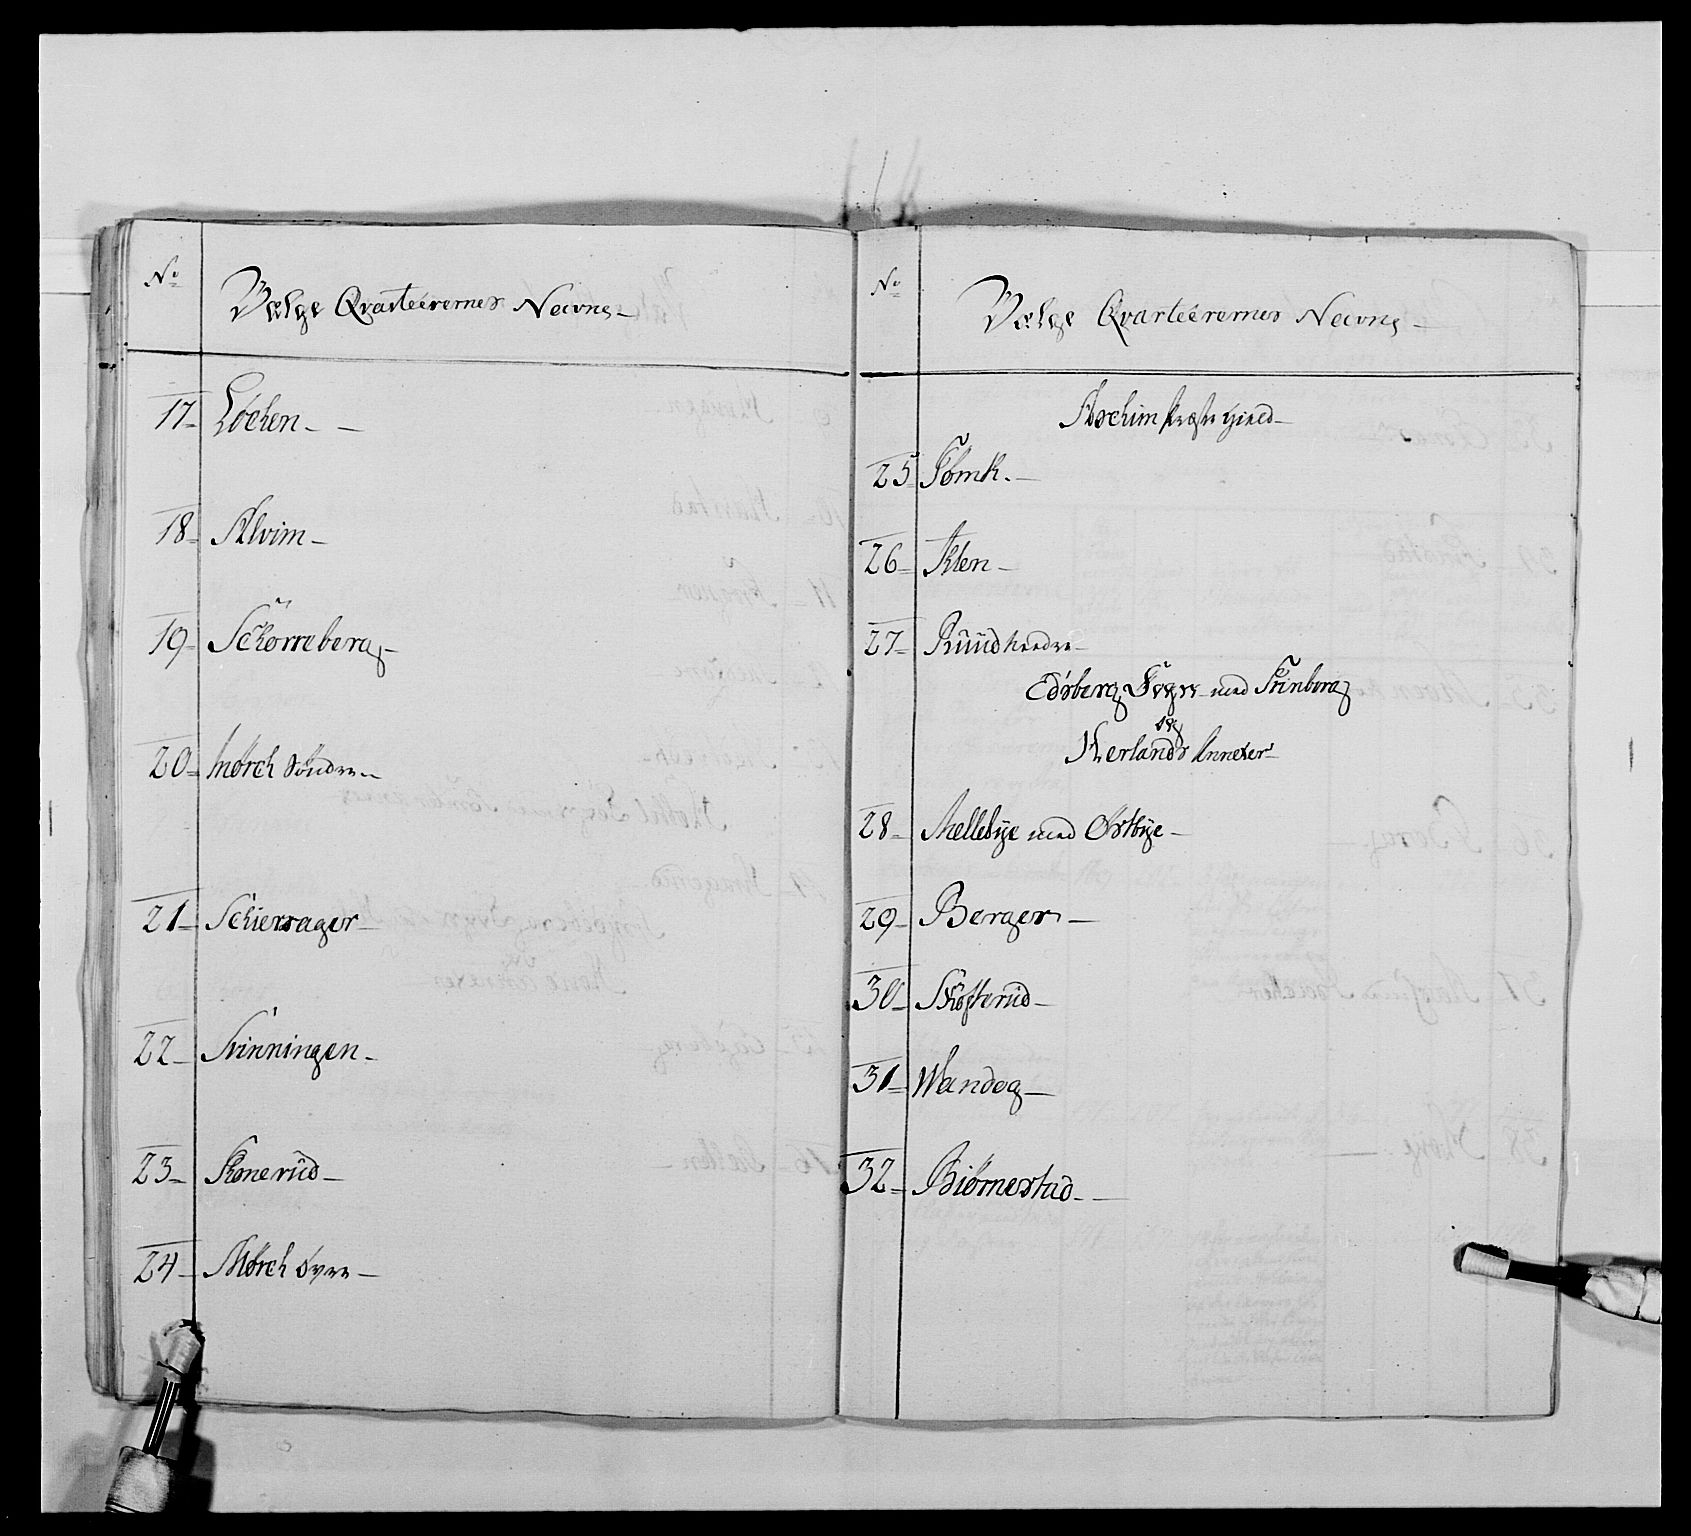 No
Vælge Qvarteerernes Navne
17 Löcken
18 Alvim
19 Schorreberg
20 Mörch Söndre
21 Schiersager
22 Svinningen
23 Konerud
24 Mörch øvre
No
Vælge Qvarteerernes Navne
Aschim Præste Gield
25 Tömk.
26 Klen
27 Ruud Nordre
Edsberg Sogn med Trinborg
og
Herlands Annexer
28 Mellebye med Ostbye
29 Berger
30 Skofterud
31 Wandog
32 Biörnestad